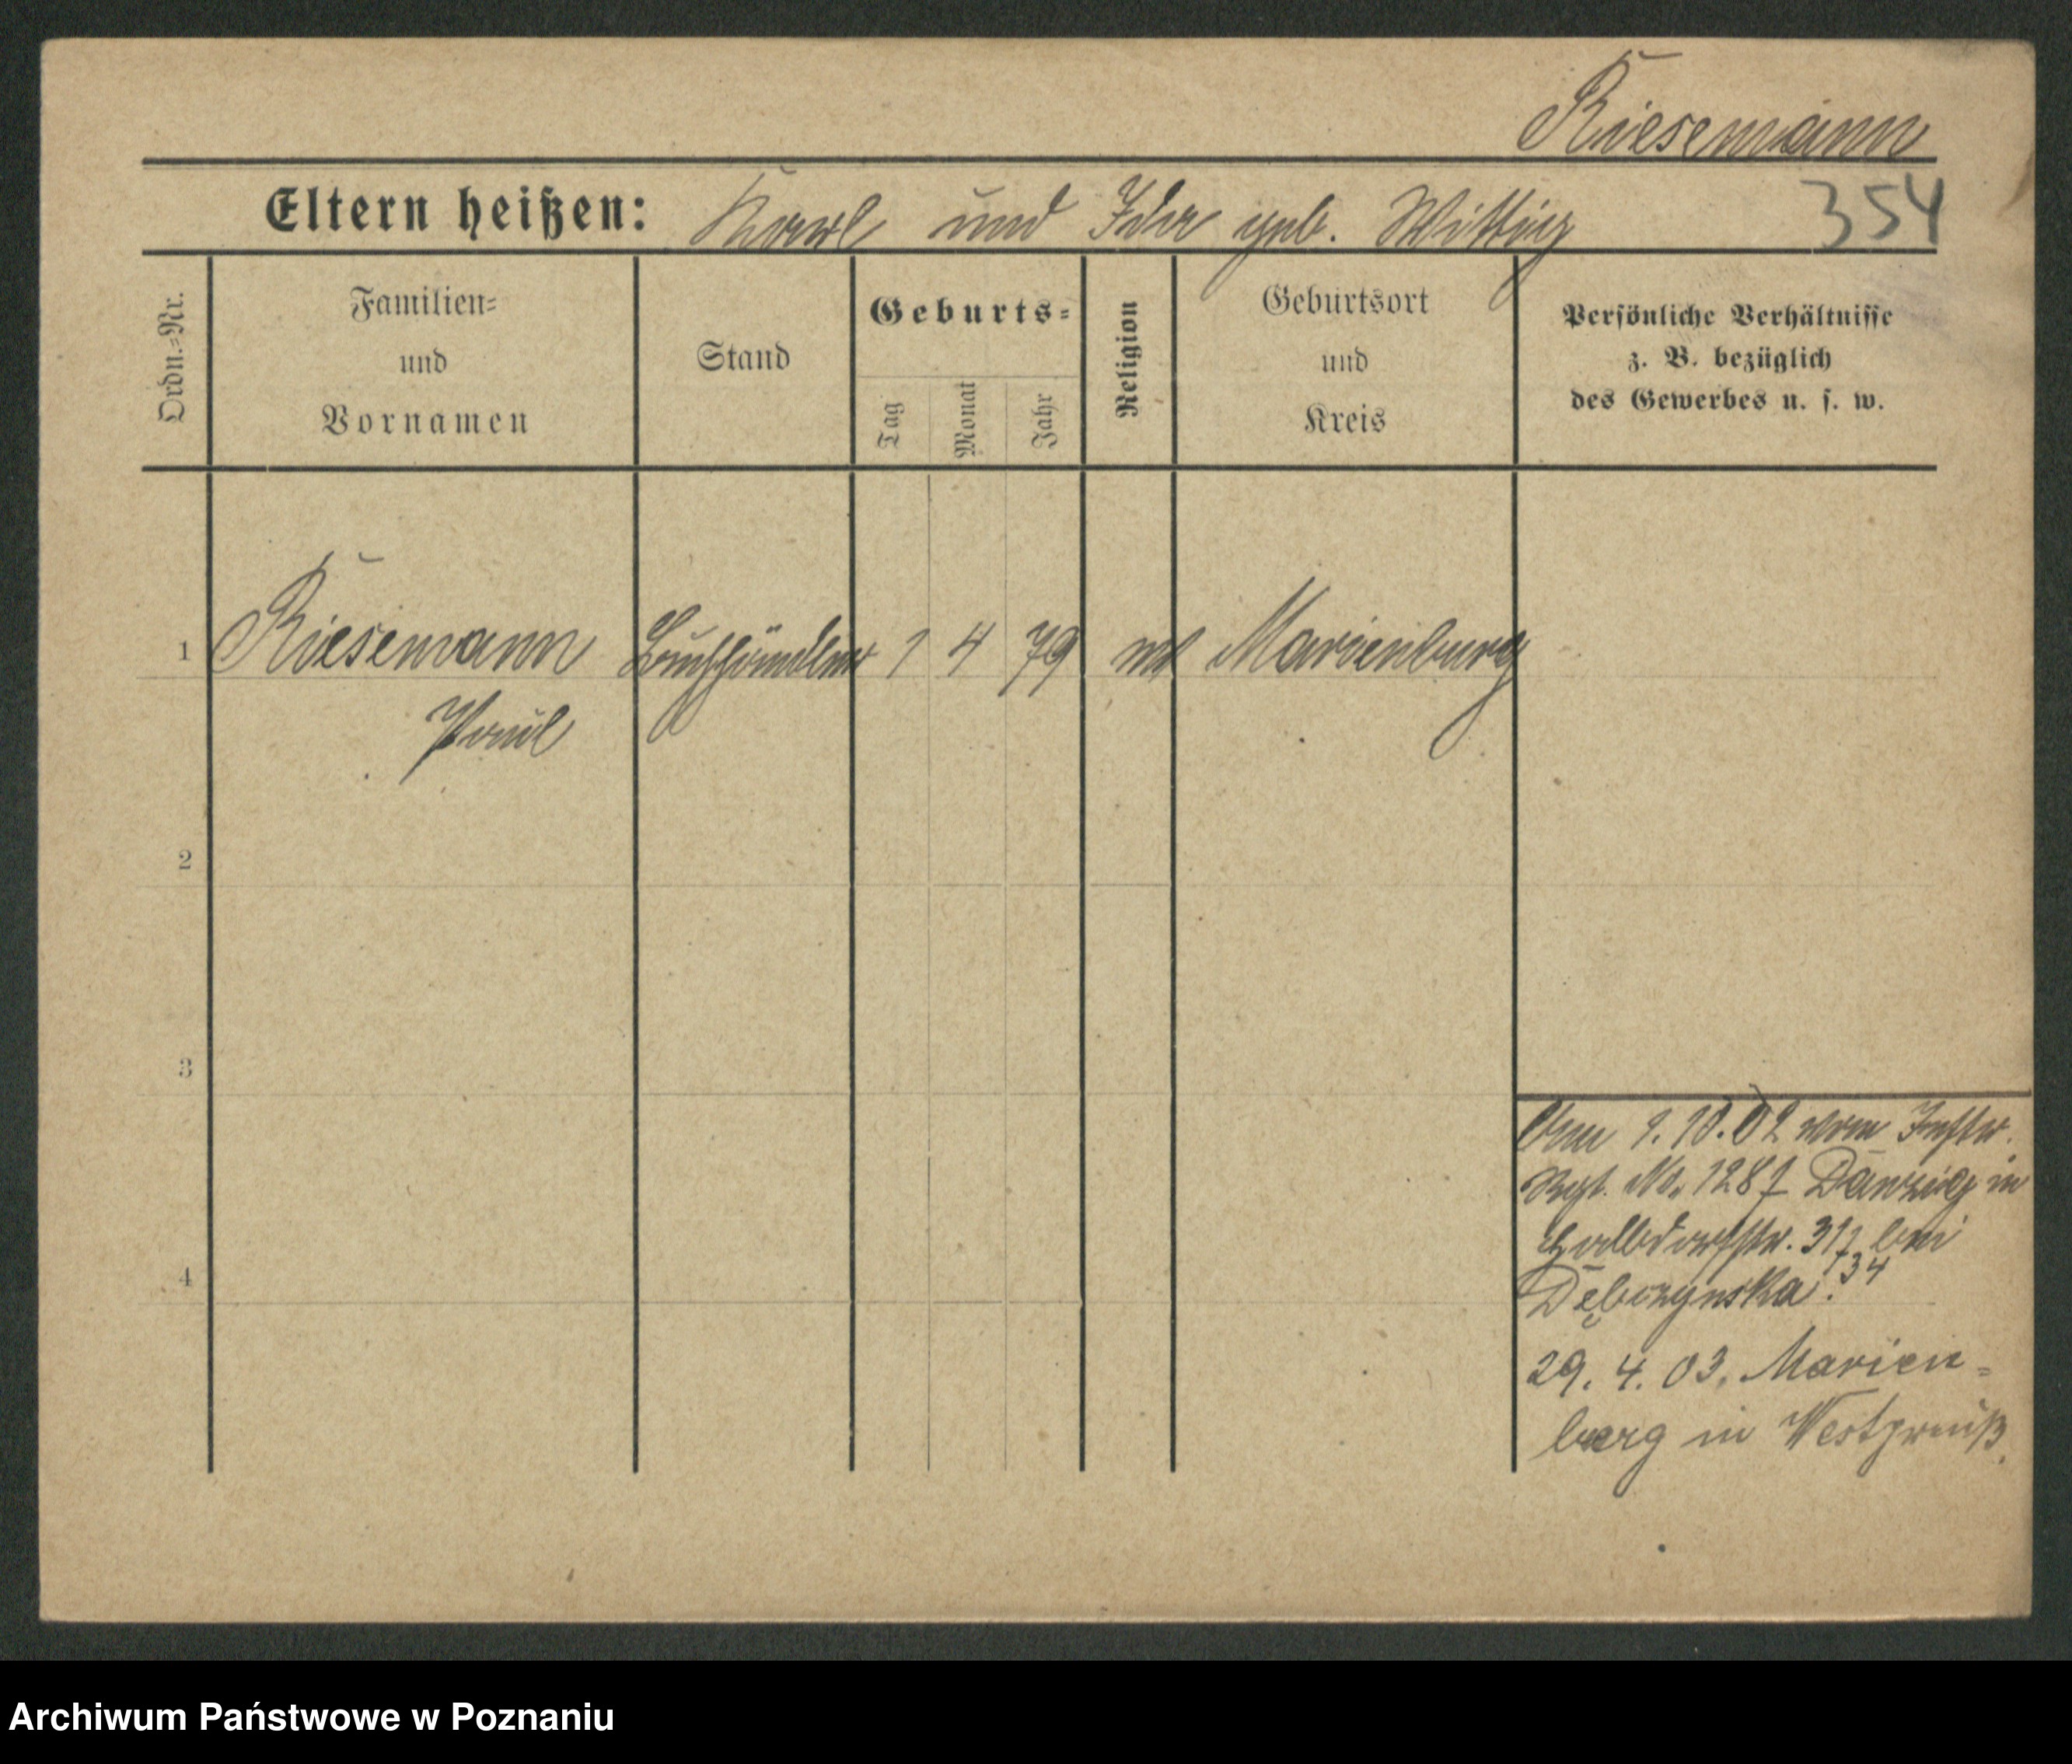 Riesemann
354
Eltern heißen: Karl und Ida geb. Wittig
Ordn.=Nr.
Familien=
und
Vornamen
Stand
Geburts=
Tag
Monat
Jahr
Religion
Geburtsort
und
Kreis
Persönliche Verhältnisse
z. B. bezüglich
des Gewerbes u. s. w.
1 Riesemann Buchhändler 1 4 79 ev Marienburg
Paul
2
3
4
1.10.02 vom Inftr.
Rgt. No. 128 Danzig in
Halbdorfstr. 31 bei
34
Dębczynska.
29. 4. 03. Marien=
burg in Westpreuß.
Archiwum Państwowe w Poznaniu